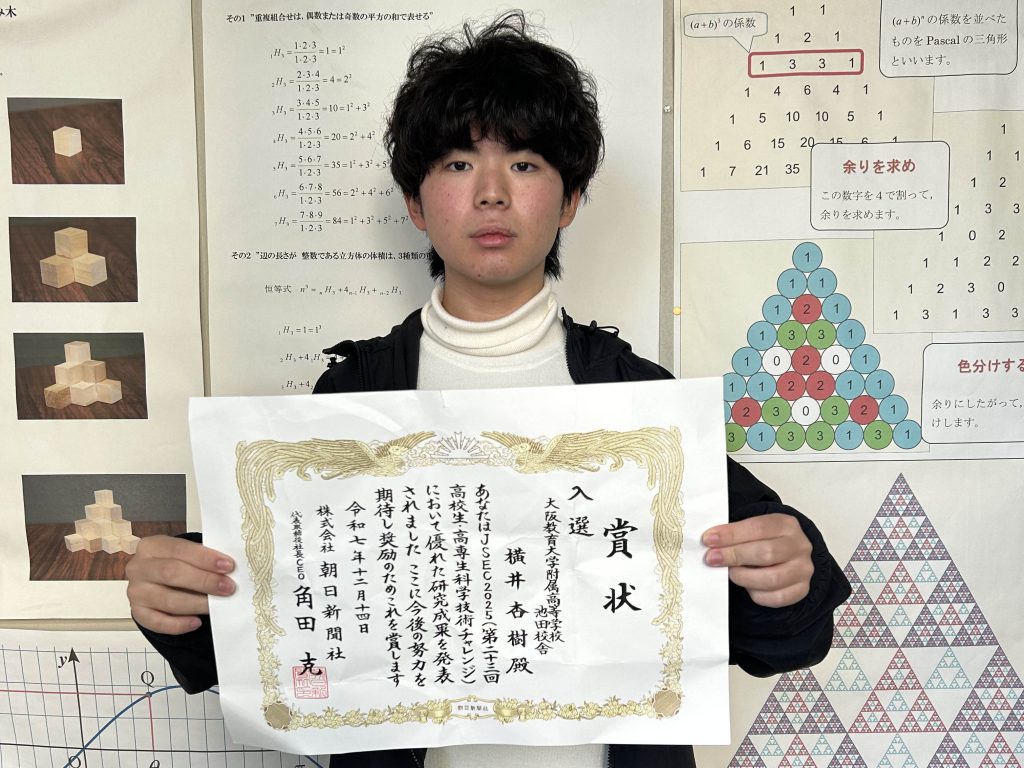 み木
その1 "重複組合せは、偶数または奇数の平方の和で表せる"
₁H₃ = 1·2·3/1·2·3 = 1 = 1²
₂H₃ = 2·3·4/1·2·3 = 4 = 2²
₃H₃ = 3·4·5/1·2·3 = 10 = 1² + 3²
₄H₃ = 4·5·6/1·2·3 = 20 = 2² + 4²
₅H₃ = 5·6·7/1·2·3 = 35 = 1² + 3² + 5²
₆H₃ = 6·7·8/1·2·3 = 56 = 2² + 4² + 6²
₇H₃ = 7·8·9/1·2·3 = 84 = 1² + 3² + 5² + 7²
その2 "辺の長さが 整数である立方体の体積は、3種類の
恒等式 n³ = ₙH₃ + 4ₙ₋₁H₃ + ₙ₋₂H₃
₁H₃ = 1 = 1³
₂H₃ + 4₁H₃
₃H₃ + 4
(a+b)³の係数
1 1
1 2 1
1 3 3 1
1 4 6 4 1
1 5 10 10 5 1
1 6 15 20 6 1
1 7 21 35
(a+b)ⁿの係数を並べた
ものをPascalの三角形
といいます。
余りを求め
この数字を4で割って,
余りを求めます。
1
1 1
1 2
1 3 3
1 0 2
1 1 2 2
1 2 3 0
1 3 1 3 3
1
1 1
1 2 1
1 3 3 1
1 0 2 0 1
1 1 2 2 1 1
2 3 0 3 2 1
3 1 3 3 1 3 1
色分けする
余りにしたがって,
けします。
賞状
入選
大阪教育大学附属高等学校
池田校舎
横井杏樹殿
あなたはJSEC2025(第二十三回
高校生・高専生科学技術チャレンジ)
において優れた研究成果を発表
されました ここに今後の努力を
期待し奨励のためこれを賞します
令和七年十二月十四日
株式会社 朝日新聞社
代表取締役社長CEO 角田 克
朝日新聞社
y
Q
O